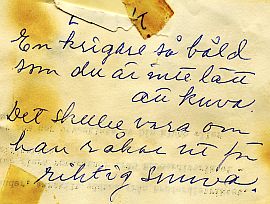 En krigare så båld
som du är inte lätt
att kuva.
Det skulle vara om
han råkar ut för
riktig snuva.